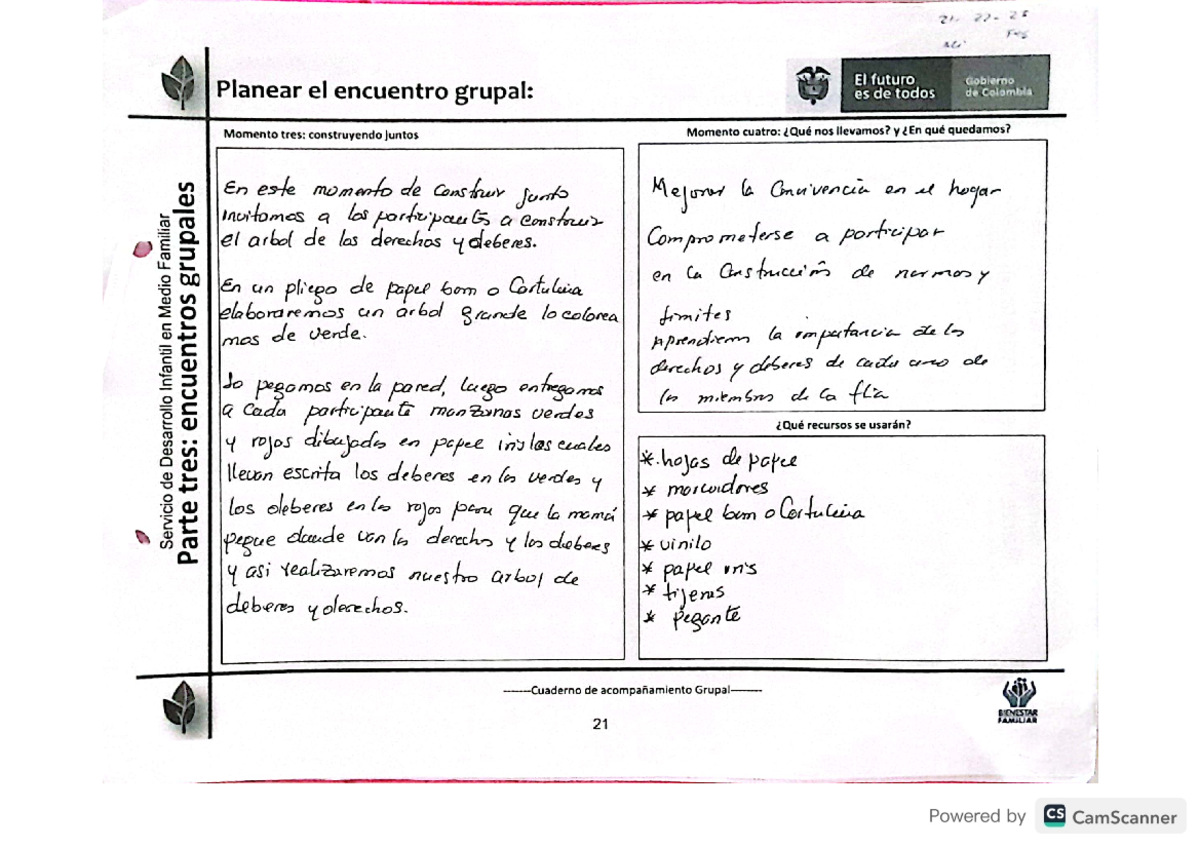 21- 22- 25
Planear el encuentro grupal:
El futuro
es de todos
Gobierno
de Colombia
Servicio de Desarrollo Infantil en Medio Familiar
Parte tres: encuentros grupales
Momento tres: construyendo juntos
En este momento de construir junto
invitamos a los participantes a construir
el arbol de los derechos y deberes.
En un pliego de papel bom o Cartulina
elaboraremos un arbol grande lo colorea
mos de verde.
lo pegamos en la pared, luego entregamos
a cada participante manzanas verdes
y rojas dibujadas en papel iris las cuales
llevan escrita los deberes en las verdes y
los deberes en las rojas para que la mamá
pegue donde van los derecho y los deberes
y asi realizaremos nuestro arbol de
deberes y derechos.
Momento cuatro: ¿Qué nos llevamos? y ¿En qué quedamos?
Mejorar la Convivencia en el hogar
Comprometerse a participar
en la Construcción de normas y
limites
Aprendieron la importancia de los
derechos y deberes de cada uno de
los miembros de la flia
¿Qué recursos se usarán?
*.hojas de papel
* marcadores
* papel bom o Cartulina
* vinilo
* papel iris
* tijeras
* pegante
-------Cuaderno de acompañamiento Grupal--------
21
BIENESTAR
FAMILIAR
Powered by CS CamScanner